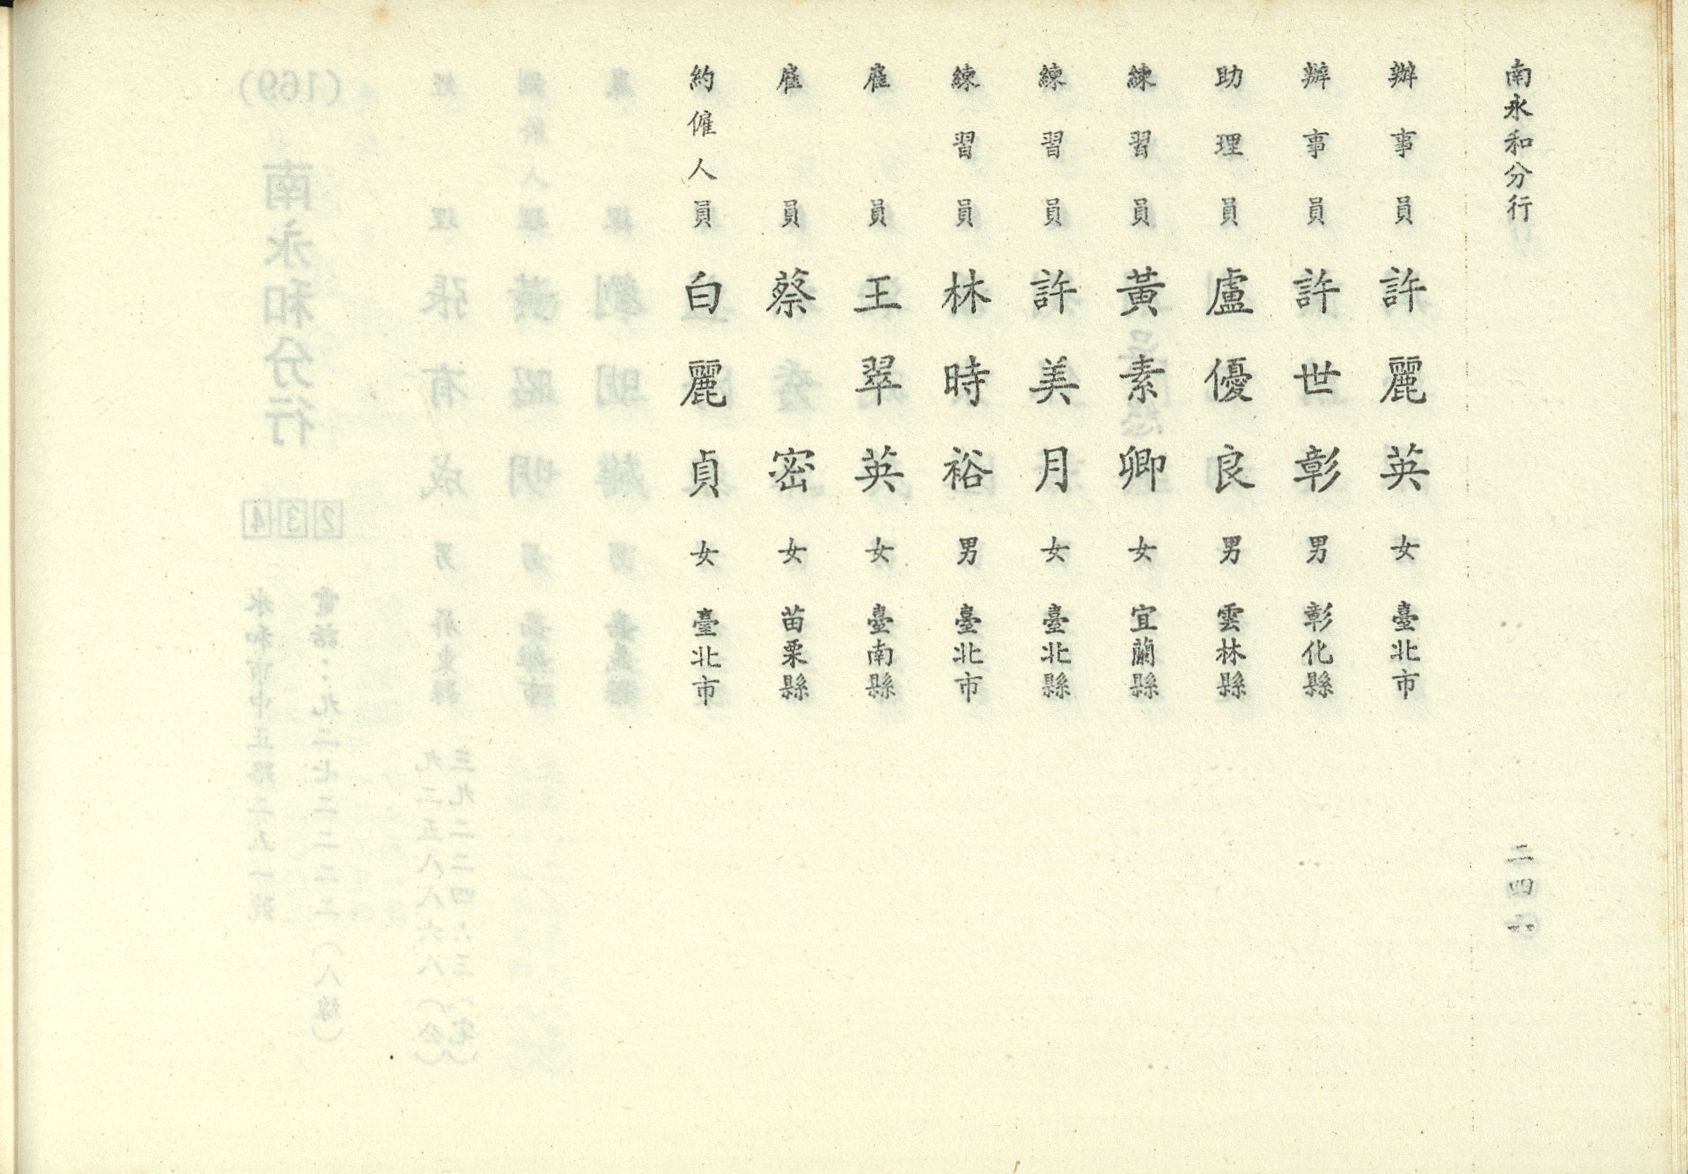 南永和分行
二四六
辦事員 許麗英 女 臺北市
辦事員 許世彰 男 彰化縣
助理員 盧優良 男 雲林縣
練習員 黃素卿 女 宜蘭縣
練習員 許美月 女 臺北縣
練習員 林時裕 男 臺北市
雇員 王翠英 女 臺南縣
雇員 蔡密 女 苗栗縣
約僱人員 白麗貞 女 臺北市